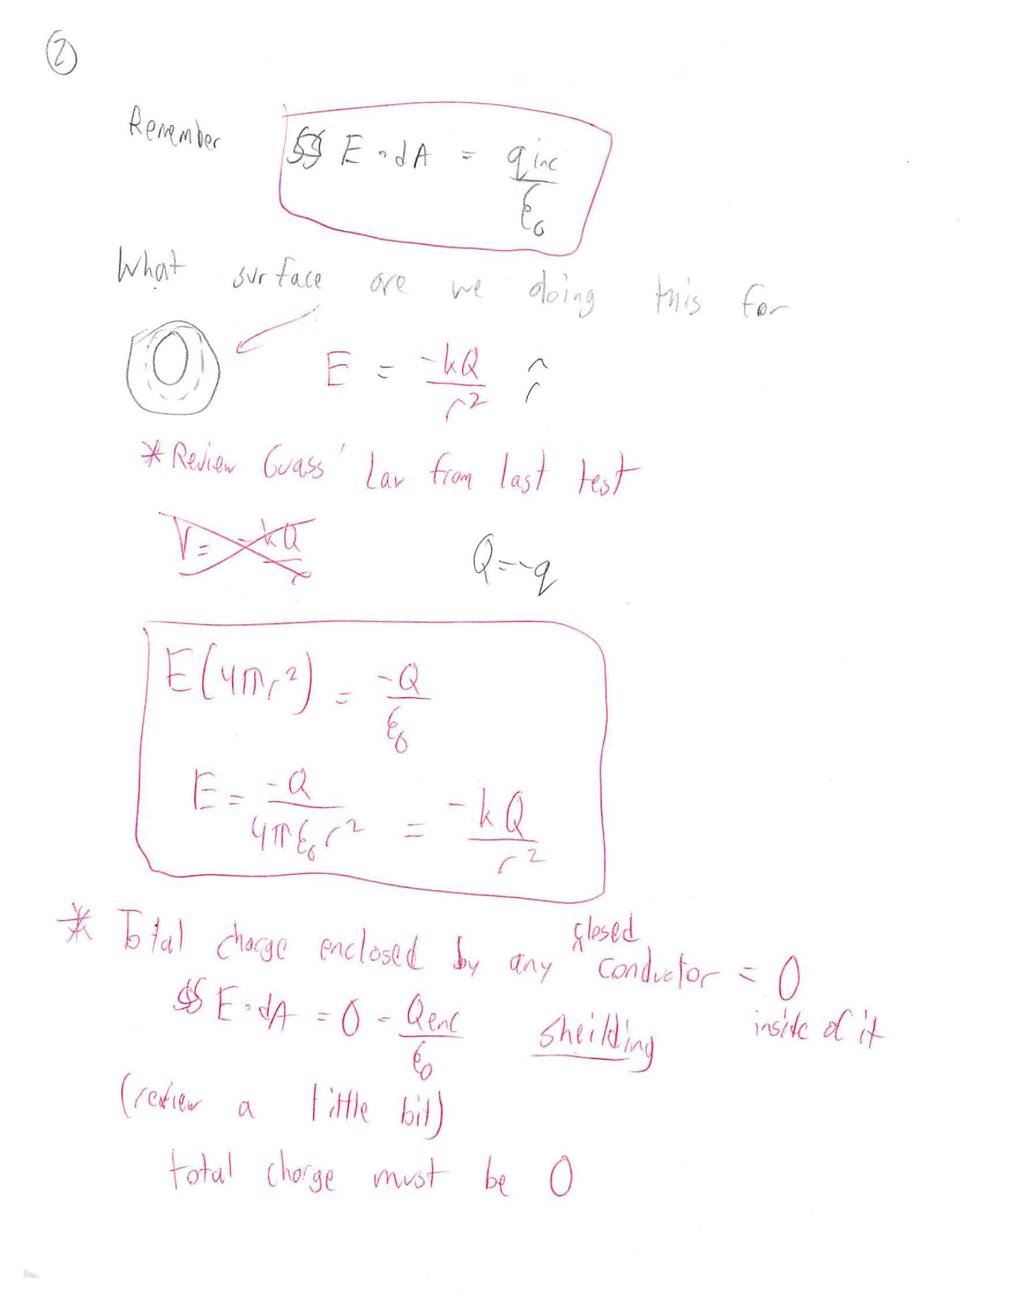 2
Remember ∯ E · dA = qinc/ε₀
What surface are we doing this for
E = -kQ/r² r̂
* Review Guass' Law from last test
V = -kQ/r
Q=-q
E(4πr²) = -Q/ε₀
E = -Q/4πε₀r² = -kQ/r²
* Total charge enclosed by any closed conductor = 0
inside of it
∯ E·dA = 0 = Qenc/ε₀ sheilding
(review a little bit)
total charge must be 0